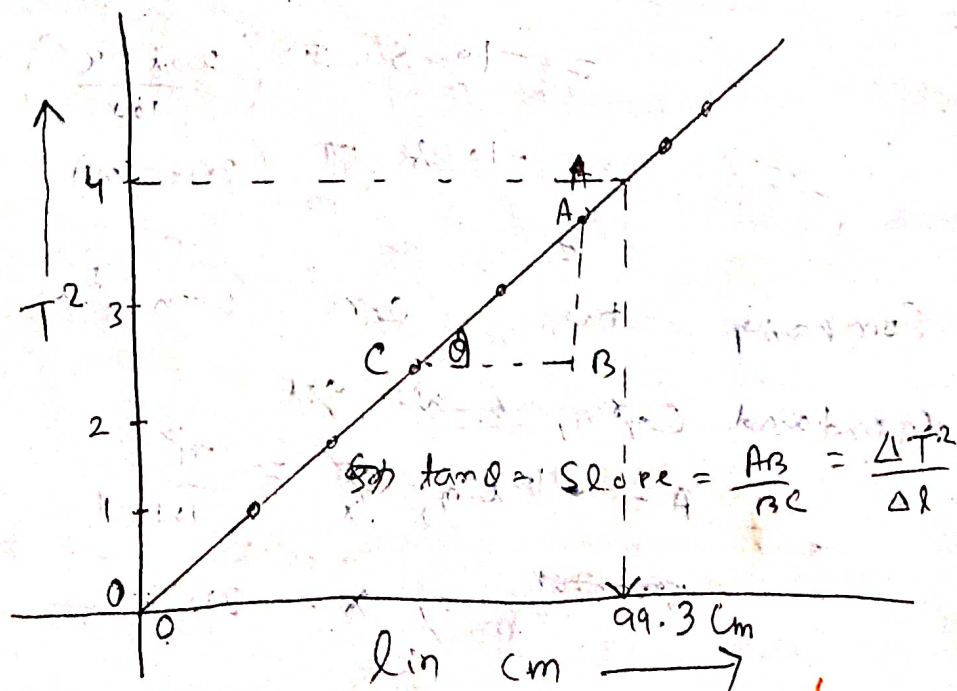 4
A
T²
3
C
θ
B
2
tanθ = Slope = AB/BC = ΔT²/Δl
1
0
0
99.3 Cm
l in cm